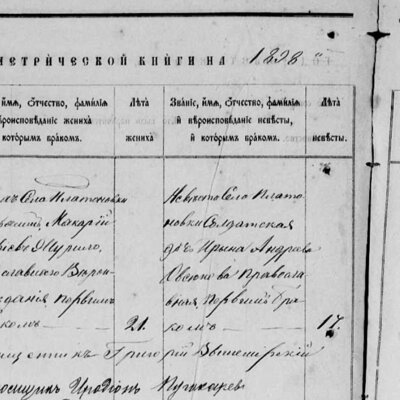 ЕТРИЧЕСКОЙ КНИГИ НА 1898
ИМЯ, ОТЧЕСТВО, ФАМИЛІЯ
ВѢРОИСПОВѢДАНІЕ ЖЕНИХА
КОТОРЫМЪ БРАКОМЪ.
ЛѢТА
ЖЕНИХА
ЗВАНІЕ, ИМЯ, ОТЧЕСТВО, ФАМИЛІЯ
И ВѢРОИСПОВѢДАНІЕ НЕВѢСТЫ,
И КОТОРЫМЪ БРАКОМЪ.
ЛѢТА
НЕВѢСТЫ.
Села Платоновки
Макарій
Шурило,
славнаго Вѣрои
вѣданія первымъ
комъ
21.
Невѣста Села Плато
новки Солдатская
дочь Ирина Андреева
Православ
ная первымъ бра
комъ
17.
Григорій
Иродіонъ